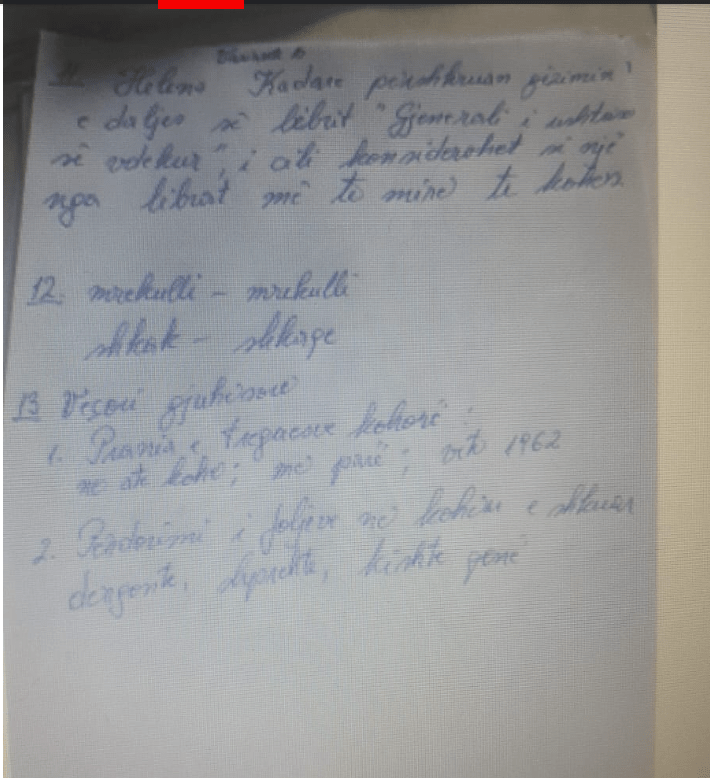 Varianti B
11 Helena Kadare përshkruan gëzimin
e daljes së librit "Gjenerali i ushtrisë
së vdekur", i cili konsiderohet si një
nga librat më të mirë të kohës.
12. mrekulli - mrekulli
shkak - shkaqe
13 Veçori gjuhësore
1. Prania e treguesve kohorë:
në atë kohë; më parë; viti 1962
2. Përdorimi i foljeve në kohën e shkuar
dërgonte, shprehte, kishte qenë